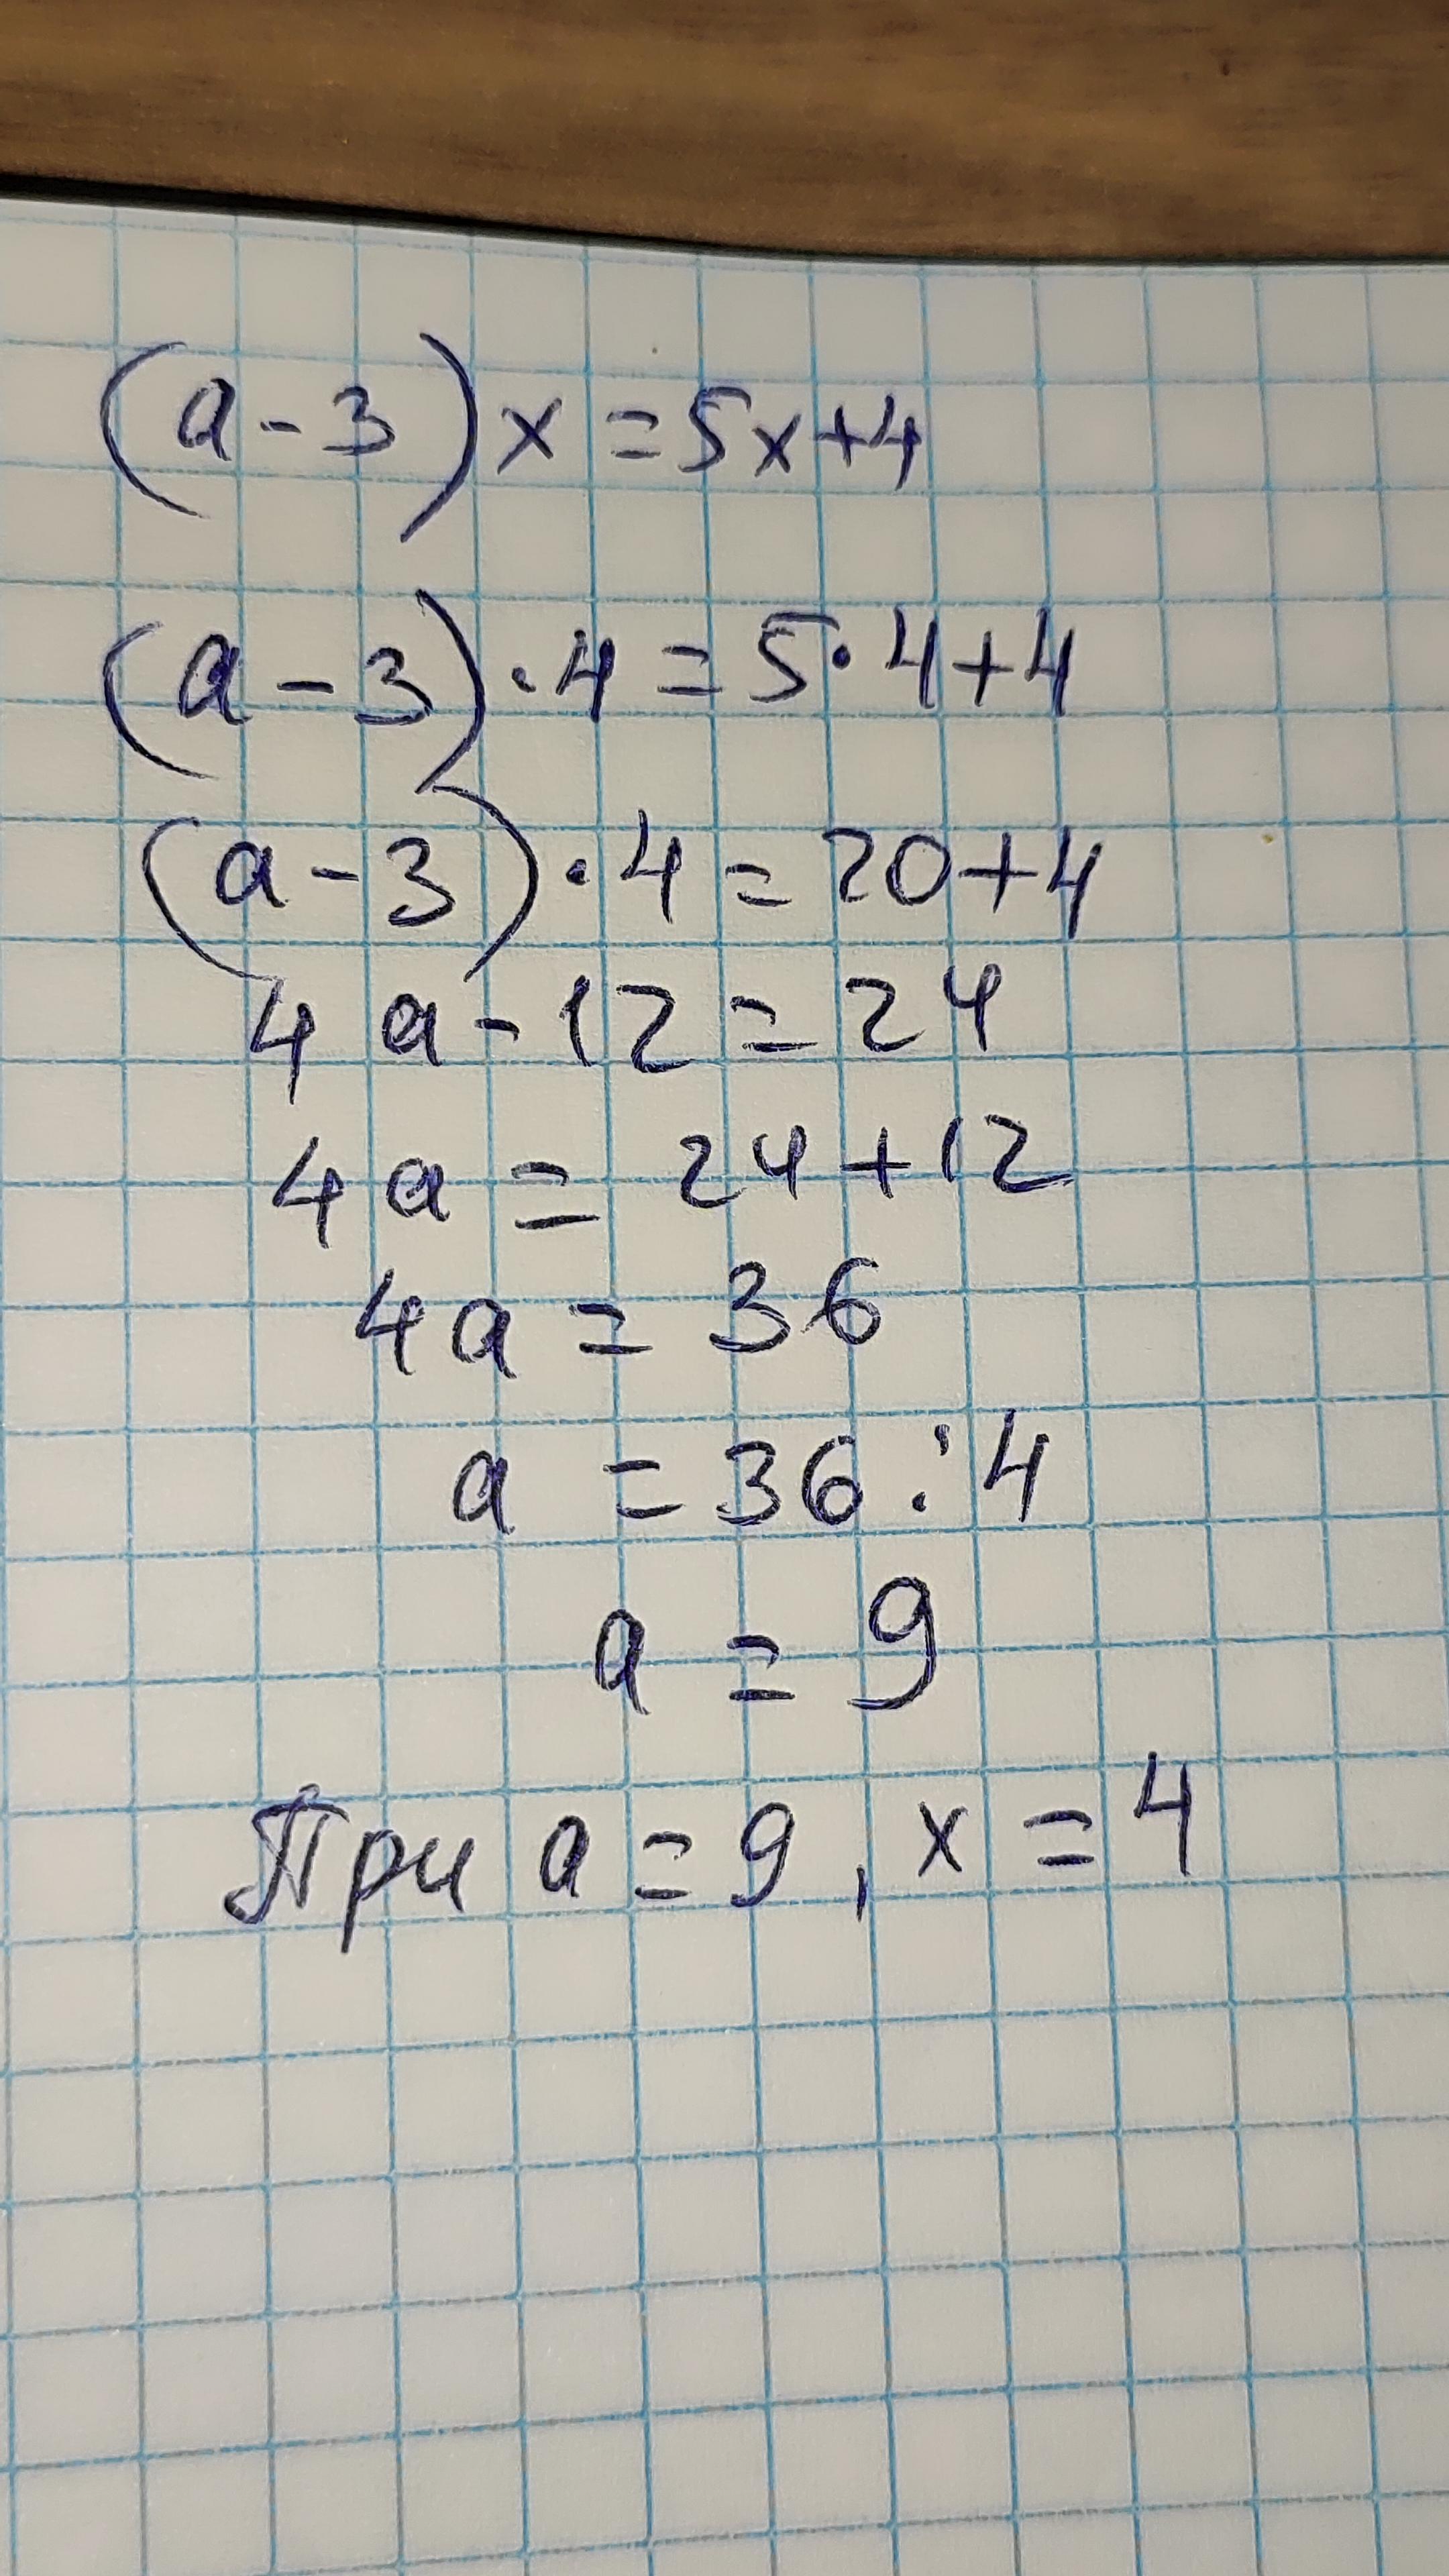 (a-3)x=5x+4
(a-3)·4=5·4+4
(a-3)·4=20+4
4a-12=24
4a=24+12
4a=36
a=36:4
a=9
При a=9, x=4